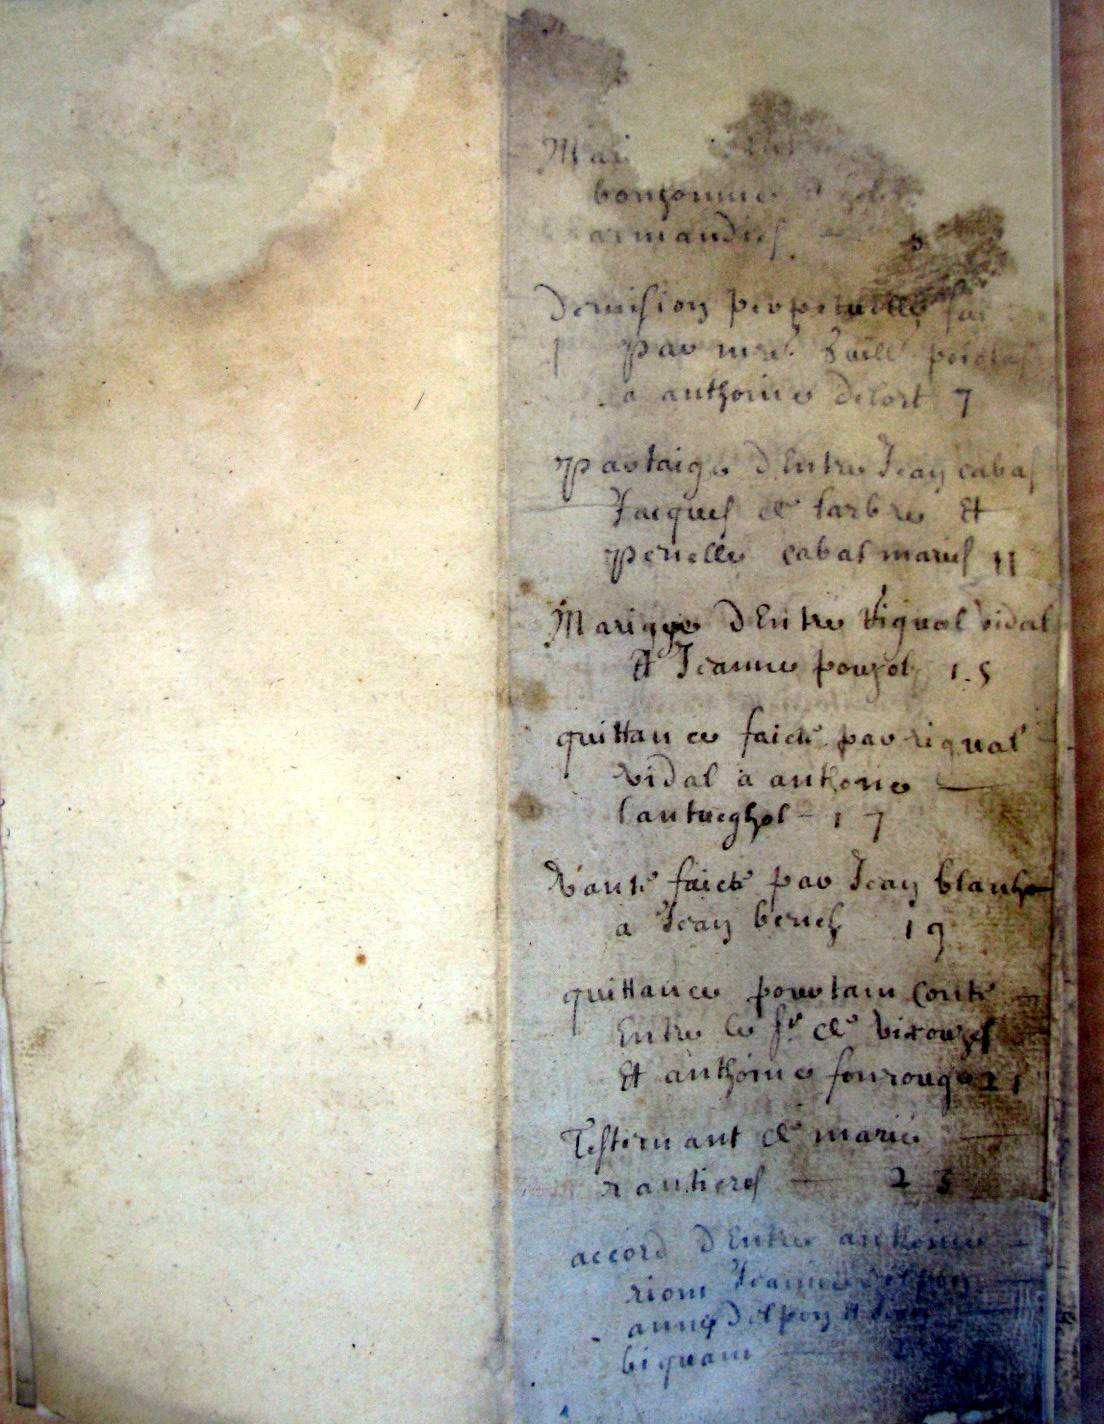 Mar
bonhomme
armandies
Demision perpetuelle fai
par mre
a anthoine delort 7
partaige d'Entre Jean cabas
Jacques de larbre Et
perielle cabas maries 11
Mariage d'Entre Rigual vidal
Et Jeanne pouzol 15
quittance faicte par rigual
vidal a anthoine
lantueghol 17
Vante faicte par Jean blanh
a Jean benech 19
quittance pourtant Conte
Entre le sr de virouzes
Et anthoine fonrouge 21
Testemant de marie
rautieres 23
accord d'Entre anthoine
riom Jeanne delpon
anne delpon Et
biguam